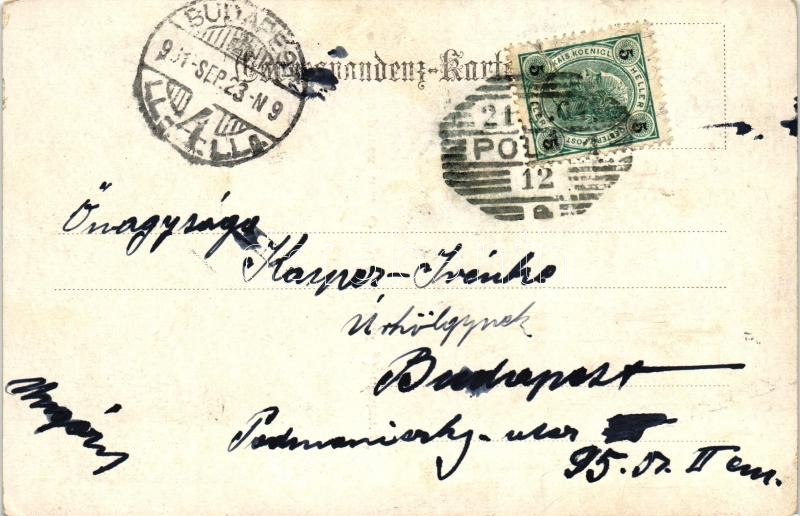 BUDAPEST
901-SEP.23-N9
4
Correspondenz-Karte
5 KAIS. KOENIGL. 5
HELLER
5 5
21
PO
12
Önagysága
Kasper-Irénke
Úrhölgynek
Budapest
Podmaniczky-utca
95. II em.
Ungarn